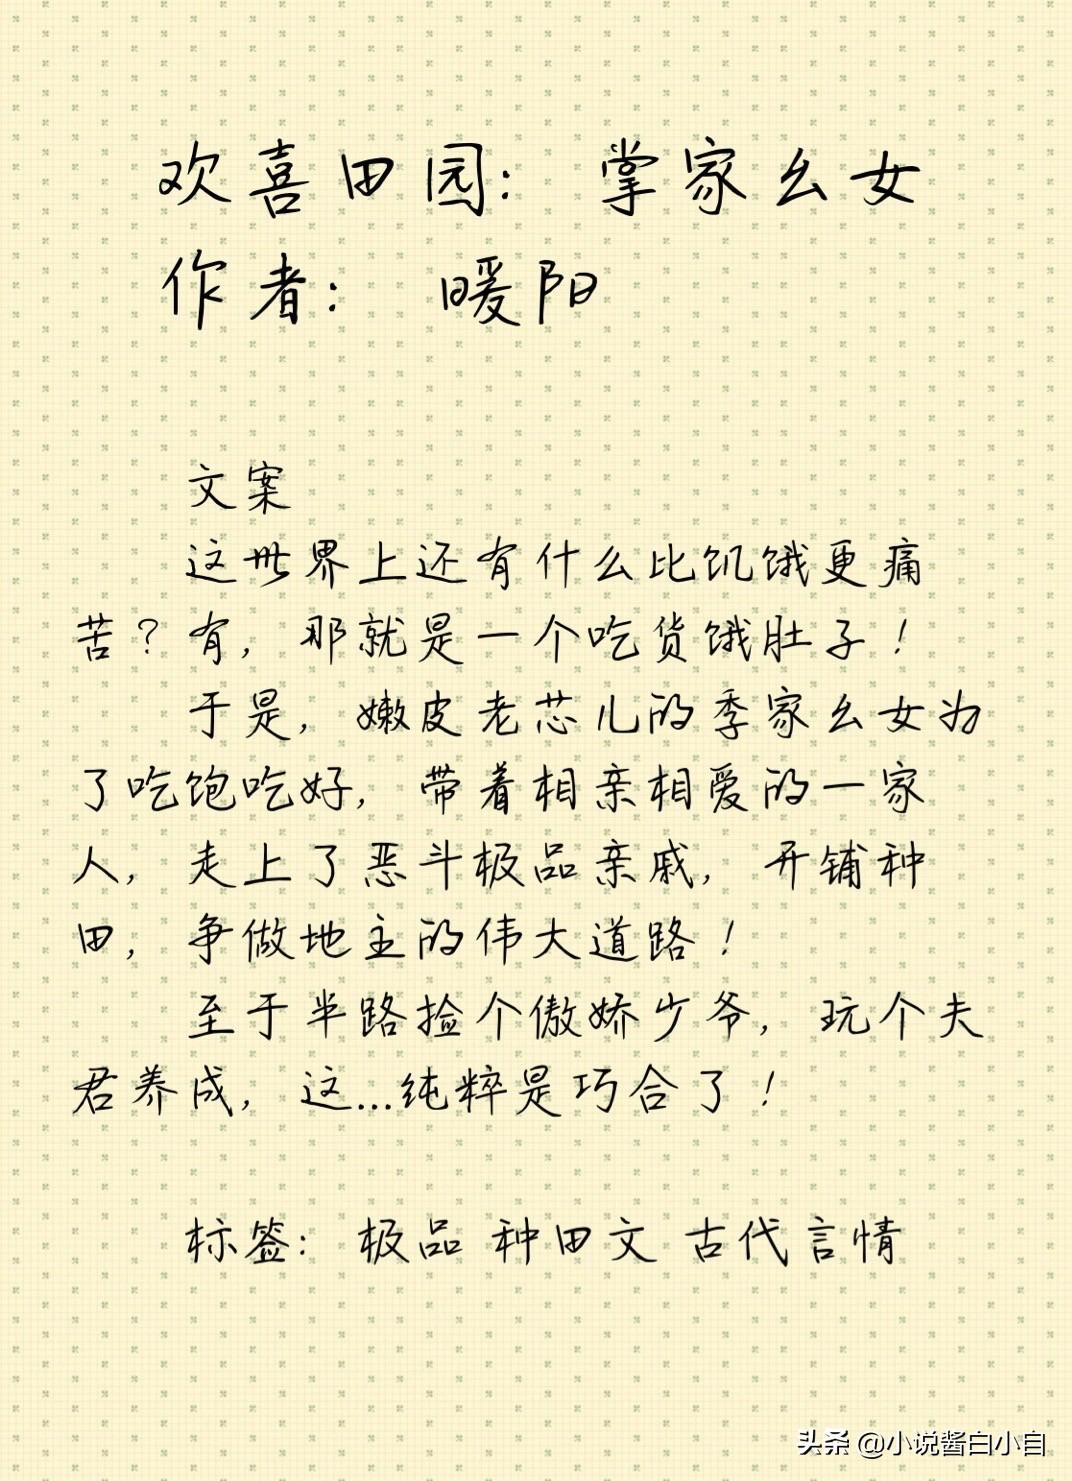 欢喜田园：掌家幺女
作者：暖阳
文案
这世界上还有什么比饥饿更痛
苦？有，那就是一个吃货饿肚子！
于是，嫩皮老芯儿的季家幺女为
了吃饱吃好，带着相亲相爱的一家
人，走上了恶斗极品亲戚，开铺种
田，争做地主的伟大道路！
至于半路捡个傲娇少爷，玩个夫
君养成，这...纯粹是巧合了！
标签：极品 种田文 古代言情
头条 @小说酱白小白